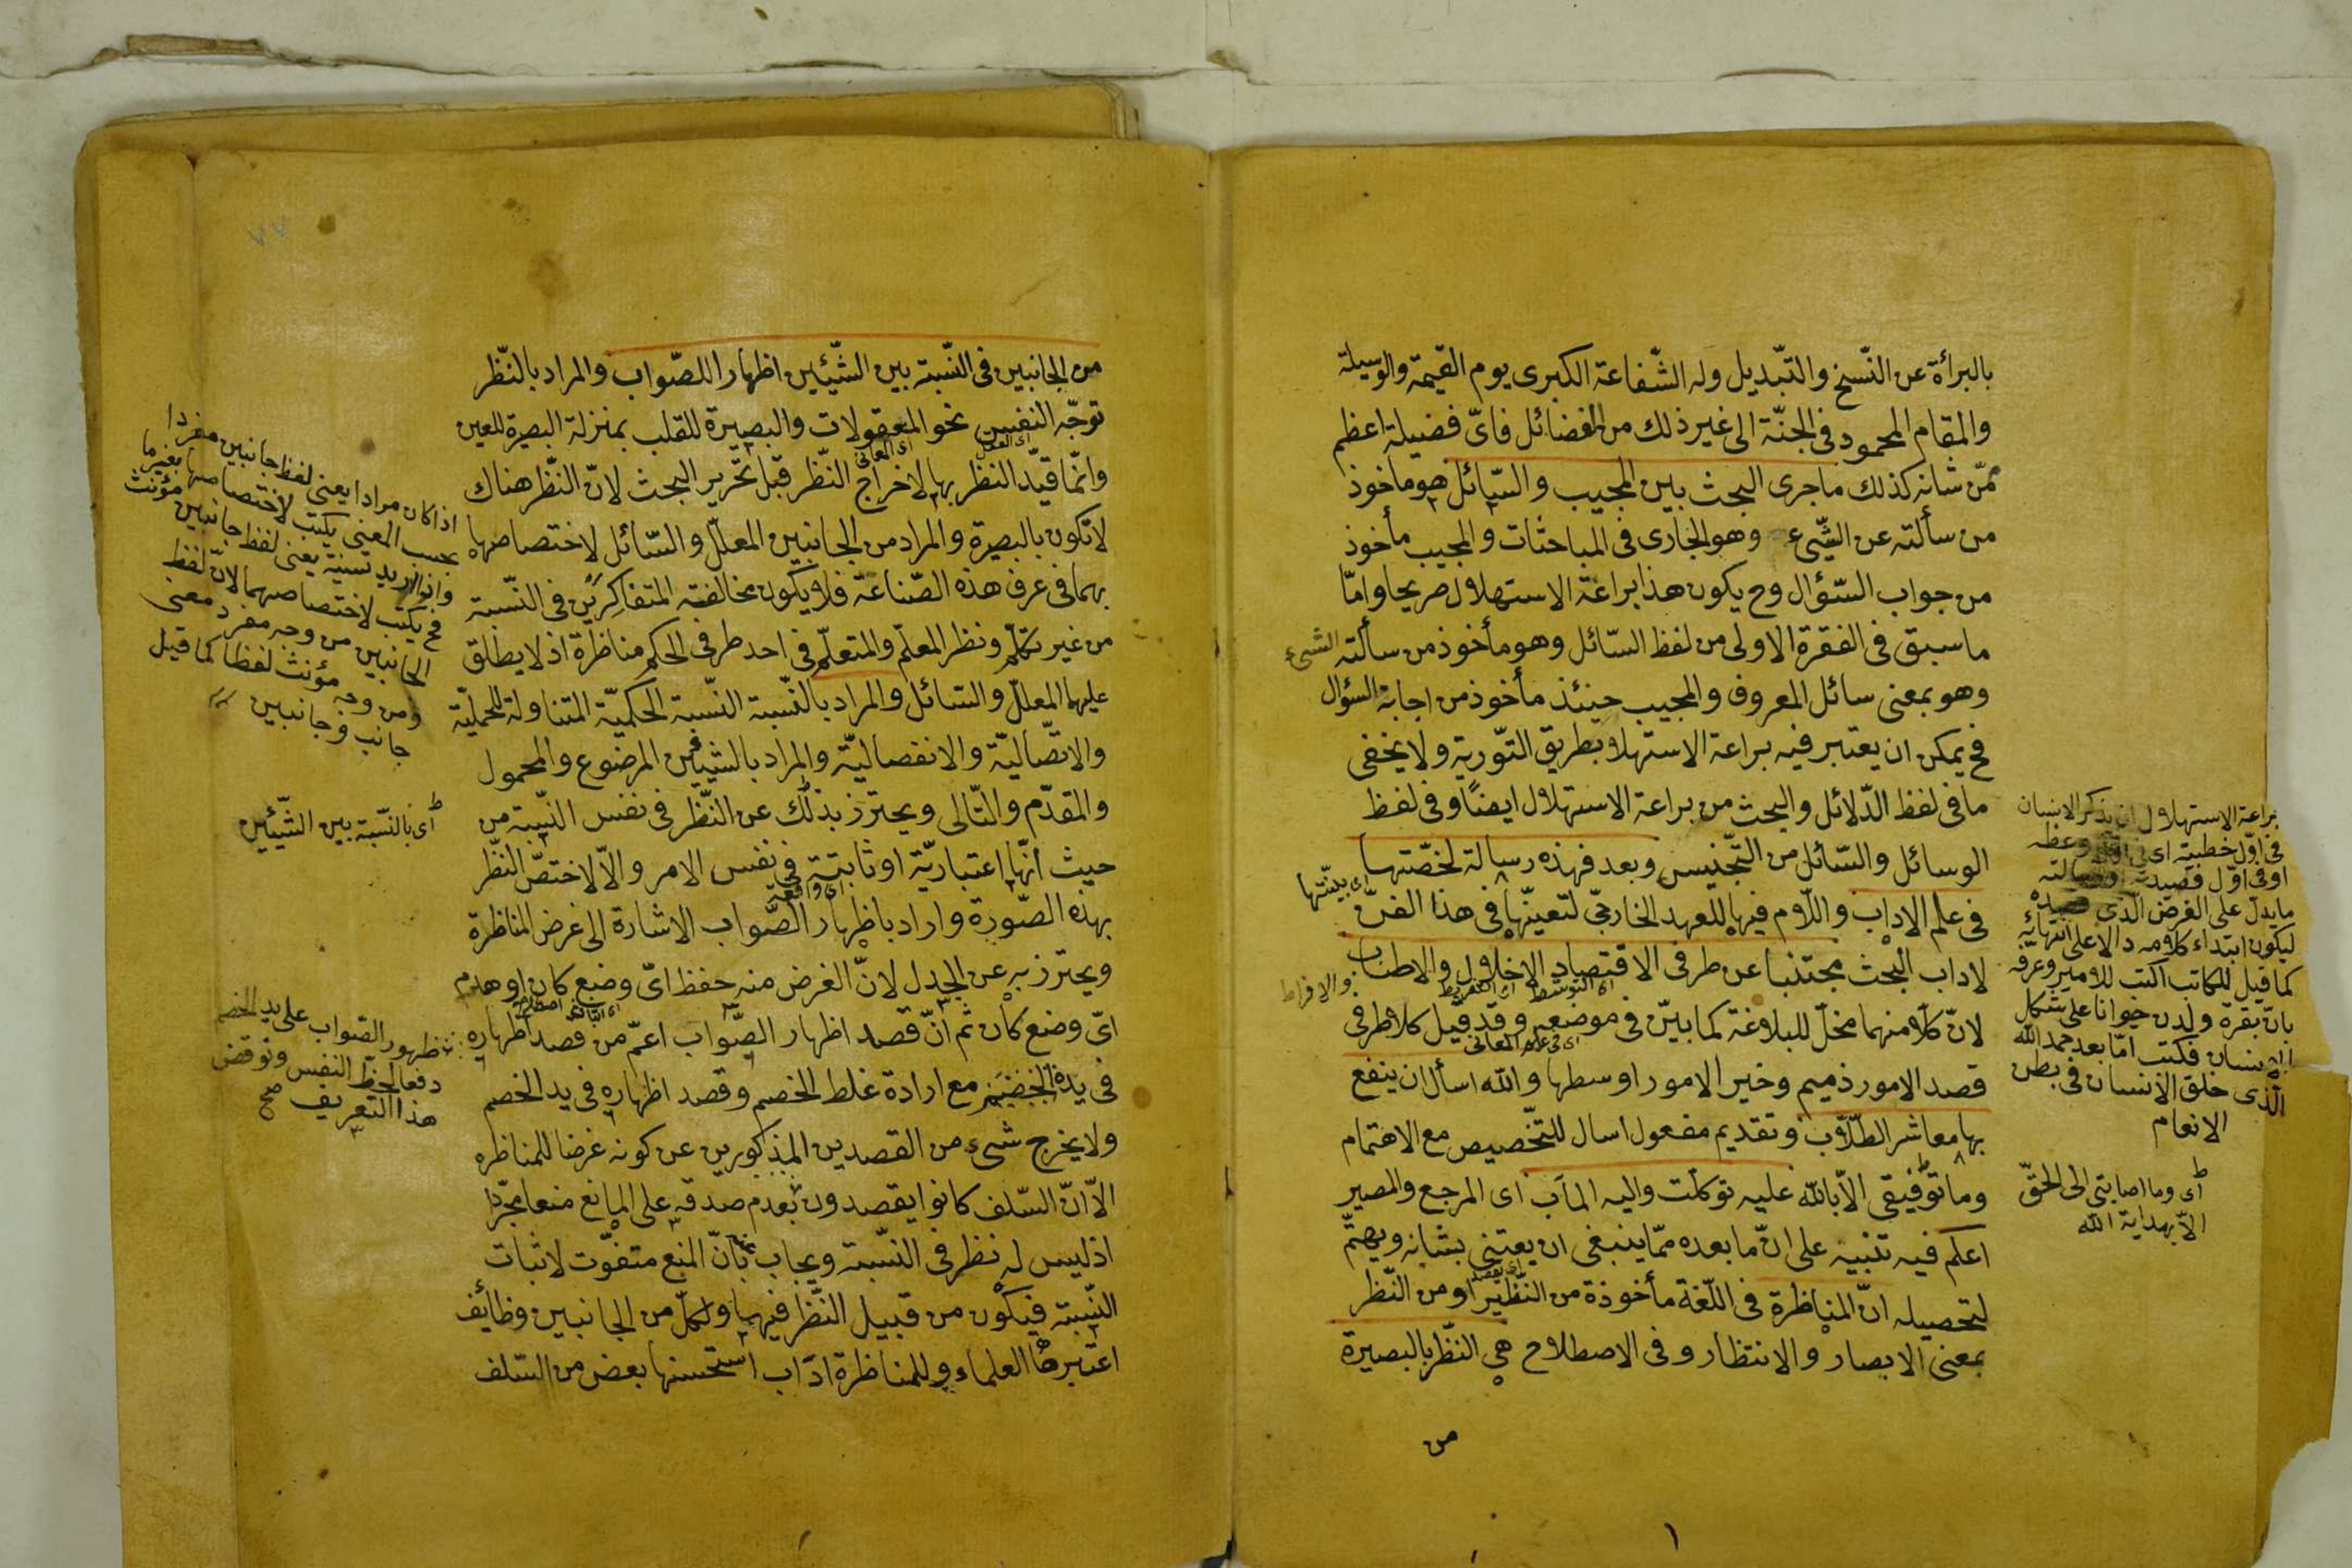 بالبرأة عن النّسخ والتّبديل وله الشّفاعة الكبرى يوم القيمة والوسيلة
والمقام المحمود فى الجنّة الى غير ذلك من الفضائل فاىّ فضيلة اعظم
ممّن شانه كذلك ماجرى البحث بين المجيب والسّائل هو مأخوذ
من سألته عن الشّىء وهو الجارى فى المباحثات والمجيب مأخوذ
من جواب السّؤال وح يكون هذا براعة الاستهلال صريحا وامّا
ما سبق فى الفقرة الاولى من لفظ السّائل وهو مأخوذ من سألته الشىء
وهو بمعنى سائل المعروف والمجيب حينئذ مأخوذ من اجابة السؤال
فح يمكن ان يعتبر فيه براعة الاستهلال بطريق التّورية ولا يخفى
ما فى لفظ الدّلائل والبحث من براعة الاستهلال ايضًا وفى لفظ
الوسائل والسّائل من التّجنيس وبعد فهذه رسالة لخصّتها
اى بيّنتها
فى علم الاداب واللّام فيها للعهد الخارجىّ لتعيّنها فى هذا الفنّ
لاداب البحث مجتنبا عن طرفى الاقتصاد الاخلال والاطناب
اى التوسّط اى التفريط والافراط
لانّ كلّا منهما مخلّ للبلاغة كما بيّن فى موضعه وقد قيل كلا طرفى
اى فى علم المعانى
قصد الامور ذميم وخير الامور اوسطها والله اسأل ان ينفع
بها معاشر الطّلّاب وتقديم مفعول اسال للتّخصيص مع الاهتمام
وما توفيقى الّا بالله عليه توكّلت واليه المآب اى المرجع والمصير
اعلم فيه تنبيه على انّ ما بعده ممّا ينبغى ان يعتنى بشانه ويهتمّ
اى يقصد
لتحصيله انّ المناظرة فى اللّغة مأخوذة من النّظير او من النّظر
بمعنى الابصار والانتظار وفى الاصطلاح هى النّظر بالبصيرة
من
براعة الاستهلال ان يذكر الانسان
فى اوّل خطبته اى فى وعظه
او فى اوّل قصيدته او رسالته
ما يدلّ على الغرض الّذى قصده
ليكون ابتداء كلامه دالا على انتهائه
كما قيل للكاتب اكتب للامير وعرفه
بانّ بقرة ولدن حيوانا على شكل
الانسان فكتب امّا بعد حمد الله
الّذى خلق الانسان فى بطن
الانعام
اى وما اصابتى الى الحقّ
الّا بهداية الله
من الجانبين فى النّسبة بين الشّيئين اظهارا للصّواب والمراد بالنّظر
توجّه النفس نحو المعقولات والبصيرة للقلب بمنزلة البصر للعين
اى العقل اى المعانى
وانّما قيّد النظر بها لاخراج النّظر قبل تحرير البحث لانّ النّظر هناك
لا تكون بالبصيرة والمراد من الجانبين المعلّل والسّائل لاختصاصها
بهما فى عرف هذه الصّناعة فلا يكون مخالفة المتفاكرين فى النّسبة
من غير تكلّم ونظر المعلّم والمتعلّم فى احد طرفى الحكم مناظرة اذ لا يطلق
عليهما المعلّل والسّائل والمراد بالنّسبة النّسبة الحكميّة المتناولة للحمليّة
والاتّصاليّة والانفصاليّة والمراد بالشّيئين الموضوع والمحمول
والمقدّم والتّالى ويحترز بذلك عن النّظر فى نفس النّسبة من
حيث انّها اعتباريّة او ثابتة فى نفس الامر والّا لاختصّ النّظر
اى واقعة
بهذه الصّورة واراد باظهار الصّواب الاشارة الى غرض المناظرة
ويحترز به عن الجدل لانّ الغرض منه حفظ اىّ وضع كان او هدم
اىّ وضع كان ثم انّ قصد اظهار الصّواب اعمّ من قصد اظهاره
فى يده مع ارادة غلط الخصم وقصد اظهاره فى يد الخصم
ولا يخرج شىء من القصدين المذكورين عن كونه غرضا للمناظره
الّا انّ السّلف كانوا يقصدون بعدم صدقه على المانع منعا مجرّدا
اذ ليس له نظر فى النّسبة ويجاب بانّ المنع متفوّت لاثبات
النّسبة فيكون من قبيل النّظر فيهما ولكلّ من الجانبين وظائف
اعتبرها العلماء وللمناظرة اداب استحسنها بعض من السّلف
اذا كان مرادا يعنى لفظ جانبين مفردا
بحسب المعنى يكتب لاختصاصها بغير ما
وان اريد تسنية يعنى لفظ جانبين مؤنث
فح يكتب لاختصاصهما لانّ لفظ
الجانبين من وجه مفرد معنى
ومن وجه مؤنث لفظا كما قيل
جانب وجانبين
اى بالنّسبة بين الشّيئين
ظهور الصّواب على يد الخصم
دفعا لحظّ النفس وتوقض
هذا التعريف صح